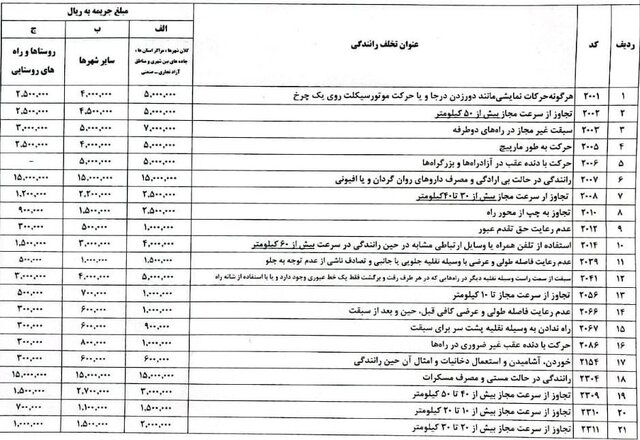 ردیف | کد | عنوان تخلف رانندگی | مبلغ جریمه به ریال
الف | ب | ج
کلان شهرها، مراکز استان ها، جاده های بین شهری و مناطق آزاد تجاری - صنعتی | سایر شهرها | روستاها و راه های روستایی
۱ | ۲۰۰۱ | هرگونه حرکات نمایشی مانند دورزدن درجا و یا حرکت موتورسیکلت روی یک چرخ | ۵,۰۰۰,۰۰۰ | ۴,۰۰۰,۰۰۰ | ۲,۵۰۰,۰۰۰
۲ | ۲۰۰۲ | تجاوز از سرعت مجاز بیش از ۵۰ کیلومتر | ۵,۰۰۰,۰۰۰ | ۴,۵۰۰,۰۰۰ | ۲,۵۰۰,۰۰۰
۳ | ۲۰۰۳ | سبقت غیر مجاز در راه‌های دوطرفه | ۷,۰۰۰,۰۰۰ | ۵,۰۰۰,۰۰۰ | ۳,۰۰۰,۰۰۰
۴ | ۲۰۰۵ | حرکت به طور مارپیچ | ۵,۰۰۰,۰۰۰ | ۴,۰۰۰,۰۰۰ | ۲,۵۰۰,۰۰۰
۵ | ۲۰۰۶ | حرکت با دنده عقب در آزادراه‌ها و بزرگراه‌ها | ۵,۰۰۰,۰۰۰ | ۵,۰۰۰,۰۰۰ | -
۶ | ۲۰۰۷ | رانندگی در حالت بی ارادگی و مصرف داروهای روان گردان و یا افیونی | ۱۵,۰۰۰,۰۰۰ | ۱۵,۰۰۰,۰۰۰ | ۱۵,۰۰۰,۰۰۰
۷ | ۲۰۰۸ | تجاوز از سرعت مجاز بیش از ۳۰ تا ۴۰ کیلومتر | ۲,۵۰۰,۰۰۰ | ۲,۲۰۰,۰۰۰ | ۱,۲۰۰,۰۰۰
۸ | ۲۰۱۰ | تجاوز به چپ از محور راه | ۲,۵۰۰,۰۰۰ | ۱,۵۰۰,۰۰۰ | ۹۰۰,۰۰۰
۹ | ۲۰۱۲ | عدم رعایت حق تقدم عبور | ۱,۰۰۰,۰۰۰ | ۵۰۰,۰۰۰ | ۳۰۰,۰۰۰
۱۰ | ۲۰۱۴ | استفاده از تلفن همراه یا وسایل ارتباطی مشابه در حین رانندگی در سرعت بیش از ۶۰ کیلومتر | ۴,۰۰۰,۰۰۰ | ۳,۰۰۰,۰۰۰ | ۱,۵۰۰,۰۰۰
۱۱ | ۲۰۳۹ | عدم رعایت فاصله طولی و عرضی با وسیله نقلیه جلویی یا جانبی و تصادف ناشی از عدم توجه به جلو | ۱,۵۰۰,۰۰۰ | ۱,۰۰۰,۰۰۰ | ۵۰۰,۰۰۰
۱۲ | ۲۰۴۱ | سبقت از سمت راست وسیله نقلیه دیگر در راه‌هایی که در هر طرف رفت و برگشت فقط یک خط عبوری وجود دارد و یا با استفاده از شانه راه | ۵,۰۰۰,۰۰۰ | ۴,۰۰۰,۰۰۰ | ۳,۰۰۰,۰۰۰
۱۳ | ۲۰۵۶ | تجاوز از سرعت مجاز تا ۱۰ کیلومتر | ۱,۰۰۰,۰۰۰ | ۷۰۰,۰۰۰ | ۵۰۰,۰۰۰
۱۴ | ۲۰۶۶ | عدم رعایت فاصله طولی و عرضی کافی قبل، حین و بعد از سبقت | ۱,۰۰۰,۰۰۰ | ۶۰۰,۰۰۰ | ۳۰۰,۰۰۰
۱۵ | ۲۰۶۷ | راه ندادن به وسیله نقلیه پشت سر برای سبقت | ۹۰۰,۰۰۰ | ۶۰۰,۰۰۰ | ۳۰۰,۰۰۰
۱۶ | ۲۰۸۶ | حرکت با دنده عقب غیر ضروری در راه‌ها | ۱,۰۰۰,۰۰۰ | ۸۰۰,۰۰۰ | ۳۰۰,۰۰۰
۱۷ | ۲۱۵۴ | خوردن، آشامیدن و استعمال دخانیات و امثال آن حین رانندگی | ۶۰۰,۰۰۰ | ۶۰۰,۰۰۰ | ۳۰۰,۰۰۰
۱۸ | ۲۳۰۴ | رانندگی در حالت مستی و مصرف مسکرات | ۱۵,۰۰۰,۰۰۰ | ۱۵,۰۰۰,۰۰۰ | ۱۵,۰۰۰,۰۰۰
۱۹ | ۲۳۰۹ | تجاوز از سرعت مجاز بیش از ۴۰ تا ۵۰ کیلومتر | ۳,۰۰۰,۰۰۰ | ۲,۷۰۰,۰۰۰ | ۱,۵۰۰,۰۰۰
۲۰ | ۲۳۱۰ | تجاوز از سرعت مجاز بیش از ۱۰ تا ۲۰ کیلومتر | ۱,۵۰۰,۰۰۰ | ۱,۱۰۰,۰۰۰ | ۷۰۰,۰۰۰
۲۱ | ۲۳۱۱ | تجاوز از سرعت مجاز بیش از ۲۰ تا ۳۰ کیلومتر | ۲,۰۰۰,۰۰۰ | ۱,۵۰۰,۰۰۰ | ۱,۰۰۰,۰۰۰